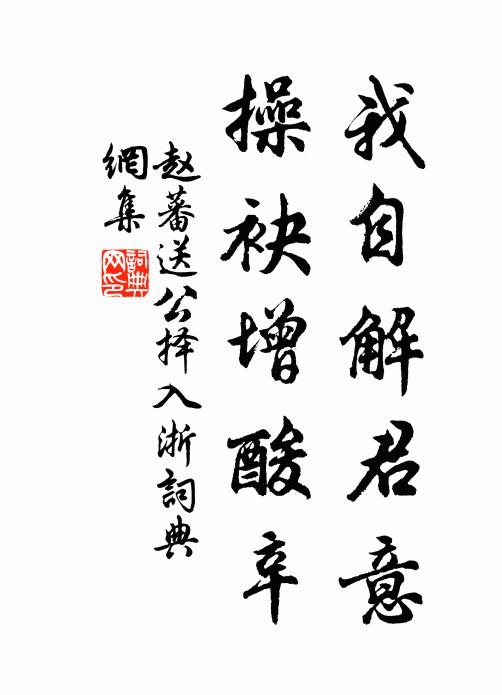 我自解君意
操袂增酸辛
赵蕃送公择入浙詞典
網集
詞典
网印